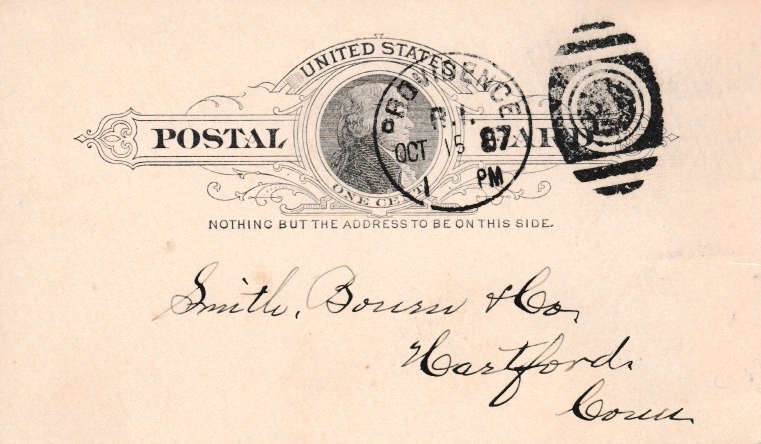 UNITED STATES
POSTAL CARD
ONE CENT
NOTHING BUT THE ADDRESS TO BE ON THIS SIDE.
PROVIDENCE
R.I.
OCT 15 87
1 PM
Smith, Bourn & Co,
Hartford.
Conn